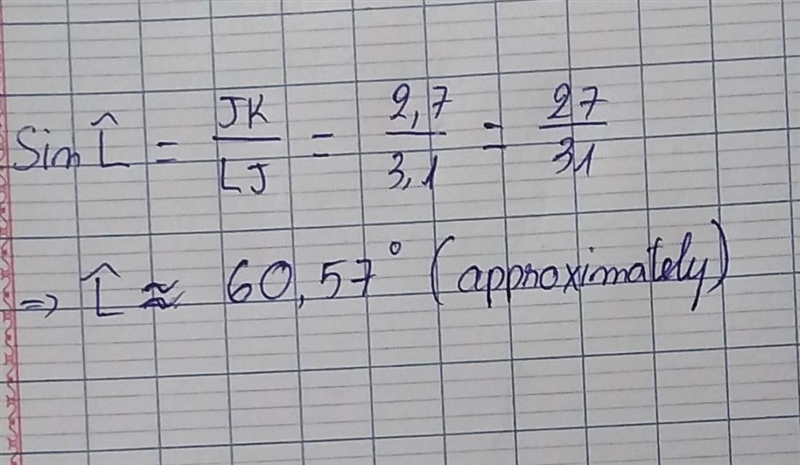 Sin L̂ = JK/LJ = 2,7/3,1 = 27/31
⇒ L̂ ≈ 60,57° (approximately)